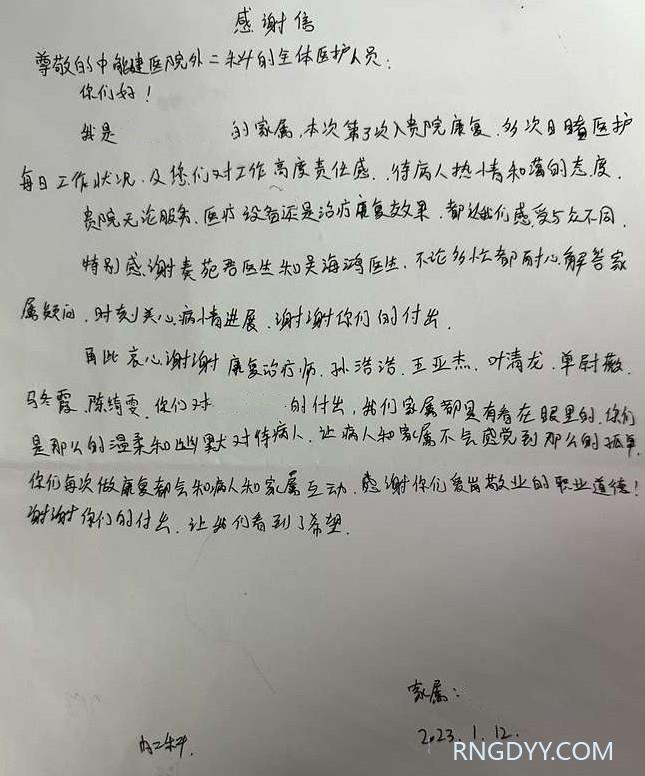 感谢信
尊敬的中能建医院外二科的全体医护人员:
你们好!
我是 的家属,本次第3次入贵院康复,多次目睹医护
每日工作状况,及您们对工作高度责任感,待病人热情和蔼的态度.
贵院无论服务、医疗设备还是治疗康复效果,都让我们感受与众不同.
特别感谢秦苑君医生和吴海鸿医生,不论多忙都耐心解答家
属疑问,时刻关心病情进展,谢谢你们的付出.
再此衷心谢谢康复治疗师、孙浩浩、王亚杰、叶清龙、单尉敬、
马冬霞、陈绮雯,你们对 的付出,我们家属都是有看在眼里的,你们
是那么的温柔和幽默对待病人,让病人和家属不会感觉到那么的孤单,
你们每次做康复都会和病人和家属互动,感谢你们爱岗敬业的职业道德!
谢谢你们的付出,让我们看到了希望.
家属:
内二科.
2023.1.12.
RNGDYY.COM